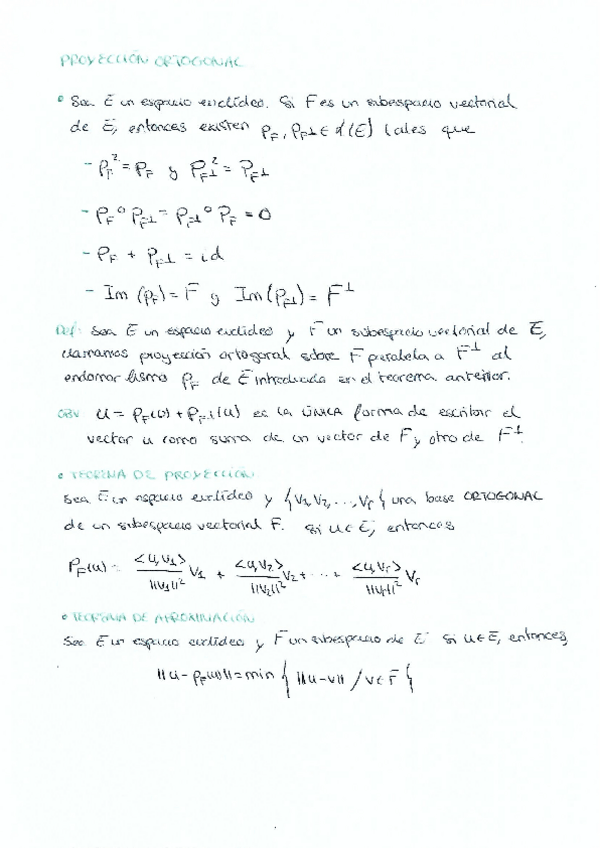 PROYECCIÓN ORTOGONAL
• Sea E un espacio euclídeo. Si F es un subespacio vectorial
de E, entonces existen p_F, p_F⊥ ∈ L(E) tales que
- p_F² = p_F y p_F⊥² = p_F⊥
- p_F ∘ p_F⊥ = p_F⊥ ∘ p_F = 0
- p_F + p_F⊥ = id
- Im (p_F) = F y Im (p_F⊥) = F⊥
Def: Sea E un espacio euclídeo y F un subespacio vectorial de E,
llamamos proyección ortogonal sobre F paralela a F⊥ al
endomorfismo p_F de E introducido en el teorema anterior.
OBV u = p_F(u) + p_F⊥(u) es la ÚNICA forma de escribir el
vector u como suma de un vector de F y otro de F⊥.
• TEOREMA DE PROYECCIÓN
Sea E un espacio euclídeo y {v₁, v₂, ..., vᵣ} una base ORTOGONAL
de un subespacio vectorial F. Si u ∈ E, entonces
p_F(u) = <u,v₁>/||v₁||² v₁ + <u,v₂>/||v₂||² v₂ + ... + <u,vᵣ>/||vᵣ||² vᵣ
• TEOREMA DE APROXIMACIÓN
Sea E un espacio euclídeo y F un subespacio de E. Si u ∈ E, entonces,
||u - p_F(u)|| = min { ||u-v|| / v ∈ F }